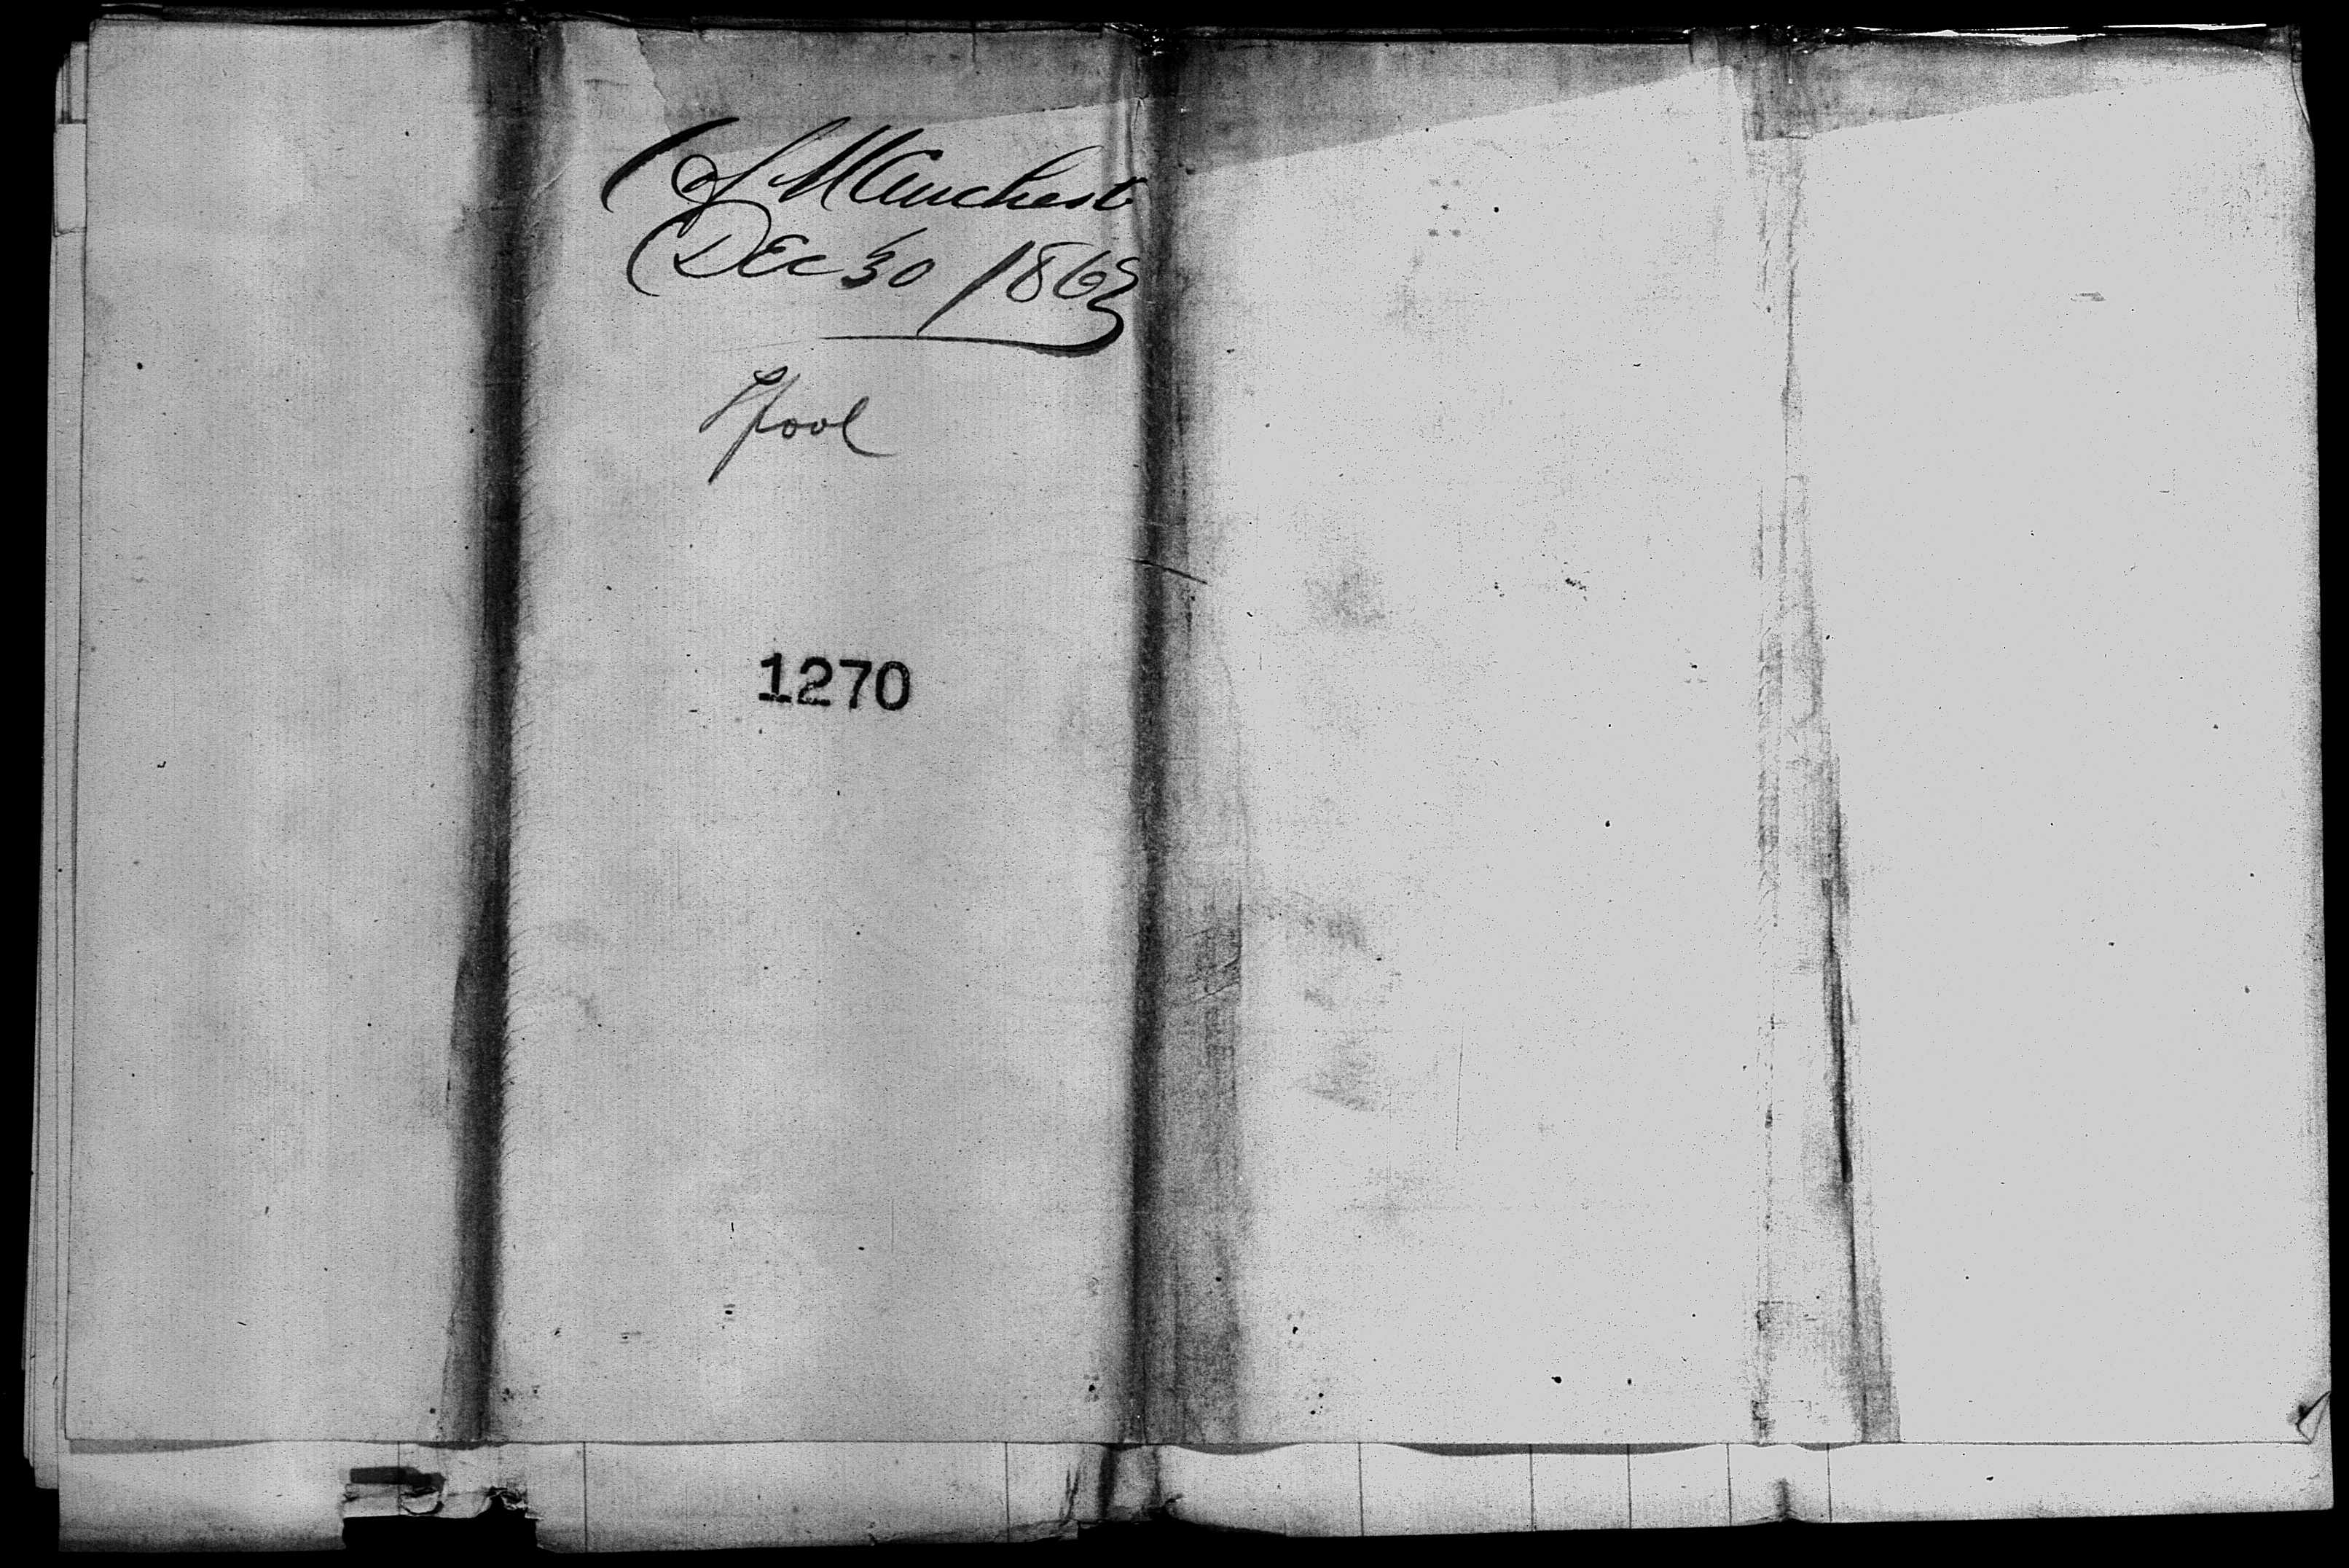 C of Manchest
Dec 30 1863
Lpool
1270